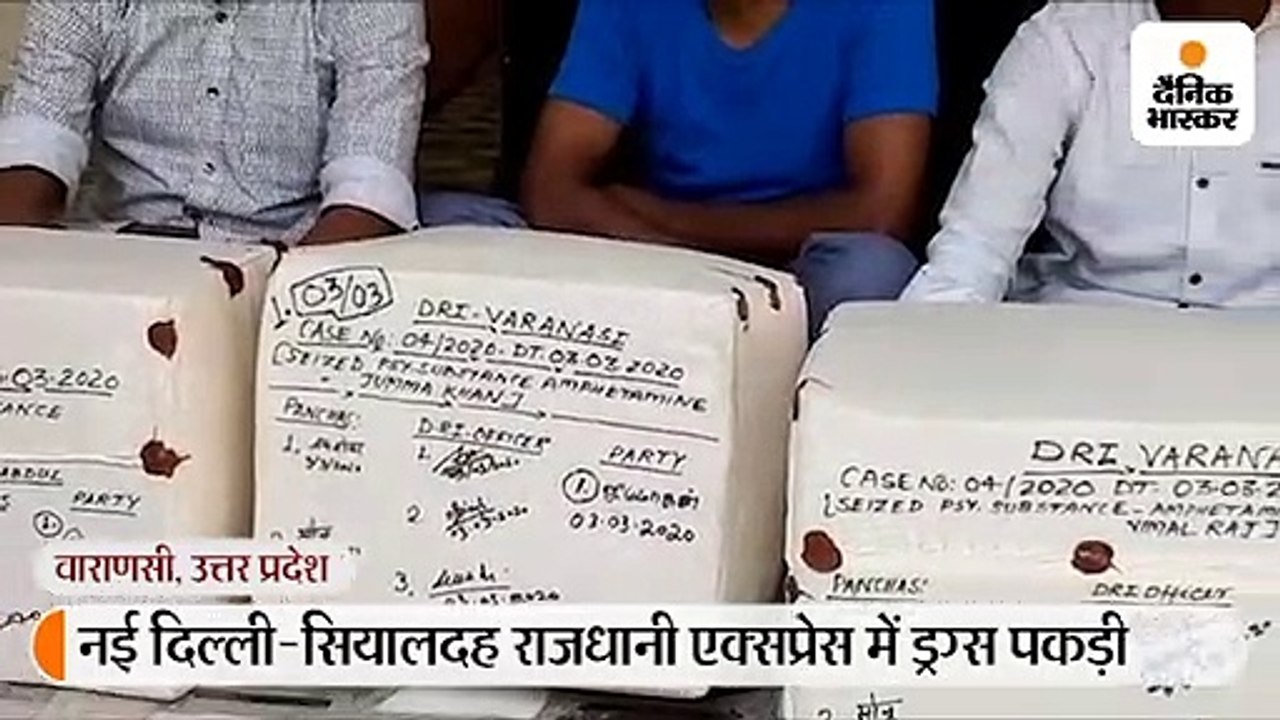 दैनिक
भास्कर
-03-2020
TANCE
ABDUL
PARTY
1
03/03
1.
DRI-VARANASI
CASE No: 04/2020-DT. 03.03.2020
[SEIZED PSY. SUBSTANCE AMPHETAMINE
- JUMMA KHAN]
PANCHAS:
DRI OFFICER
PARTY
1.
1.
1
03.03.2020
2
3.
03.03.2020
DRI, VARANA
CASE No: 04/2020 DT- 03-03-2
[SEIZED PSY. SUBSTANCE-AMPHETAM
VIMAL RAJ]
PANCHAS:
DRI OFFICER
2
सोनू
वाराणसी, उत्तर प्रदेश
नई दिल्ली-सियालदह राजधानी एक्सप्रेस में ड्रग्स पकड़ी